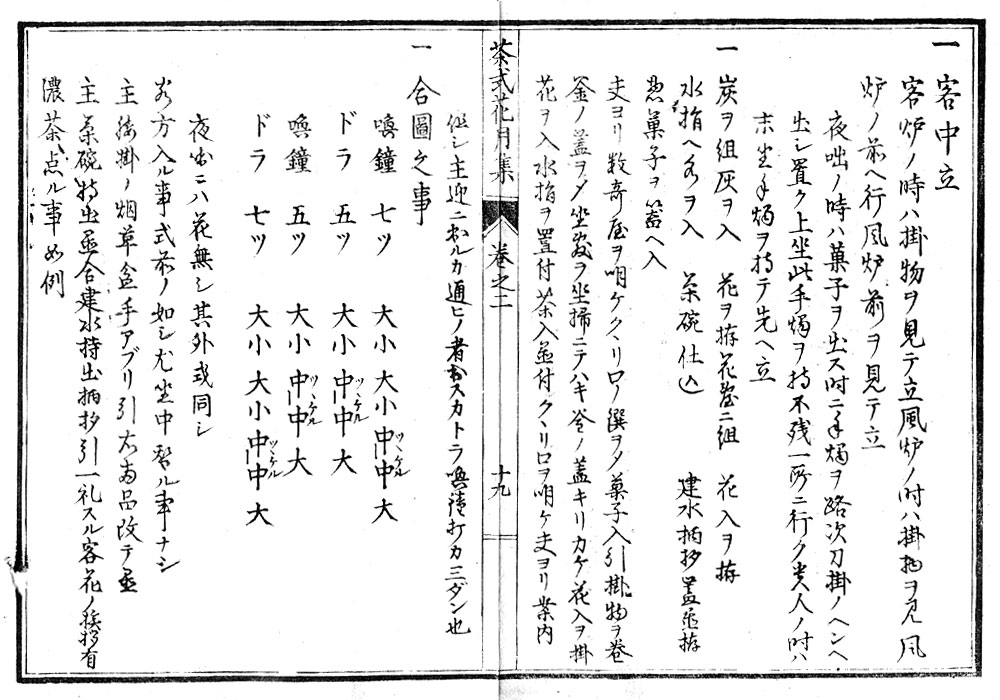 一 客中立
客炉ノ時ハ掛物ヲ見テ立風炉ノ时ハ掛物ヲ見風
炉ノ前ヘ行風炉前ヲ見テ立
夜咄ノ時ハ菓子ヲ出ス时ニ手燭ヲ路次刀掛ノヘンヘ
出シ置ク上坐此手燭ヲ持不残一所ニ行ク貴人ノ时ハ
末坐手燭ヲ持テ先ヘ立
一 炭ヲ組灰ヲ入 花ヲ拵花臺ニ組 花入ヲ拵
水指ヘ水ヲ入 茶碗仕込 建水柄杓蓋置拵
惣菓子ヲ器ヘ入
夫ヨリ数奇屋ヲ明ケクヽリ口ノ撰ヲメ菓子入引掛物ヲ巻
釜ノ蓋ヲメ坐敷ヲ坐掃ニテハキ釜ノ蓋キリカケ花入ヲ掛
花ヲ入水指ヲ置付茶入並付クヽリ口ヲ明ケ夫ヨリ案内
茶式花月集 巻之二 十九
但シ主迎ニ出ルカ通ヒノ者出スカトラ喚鐘打カ三ダン也
一 合圖之事
喚鐘 七ツ 大小 大小 中中 大 ツヽケル
ドラ 五ツ 大小 中中 大 ツヽケル
喚鐘 五ツ 大小 中中 大 ツヽケル
ドラ 七ツ 大小 大小 中中 大 ツヽケル
夜出ニハ花無シ其外或同シ
客方入ル事式前ノ如シ尤坐中替ル事ナシ
主 腰掛ノ烟草盆手アブリ引右両品改テ置
主 茶碗持出置合建水持出柄杓引一礼スル客花ノ挨拶有
濃茶点ル事如例